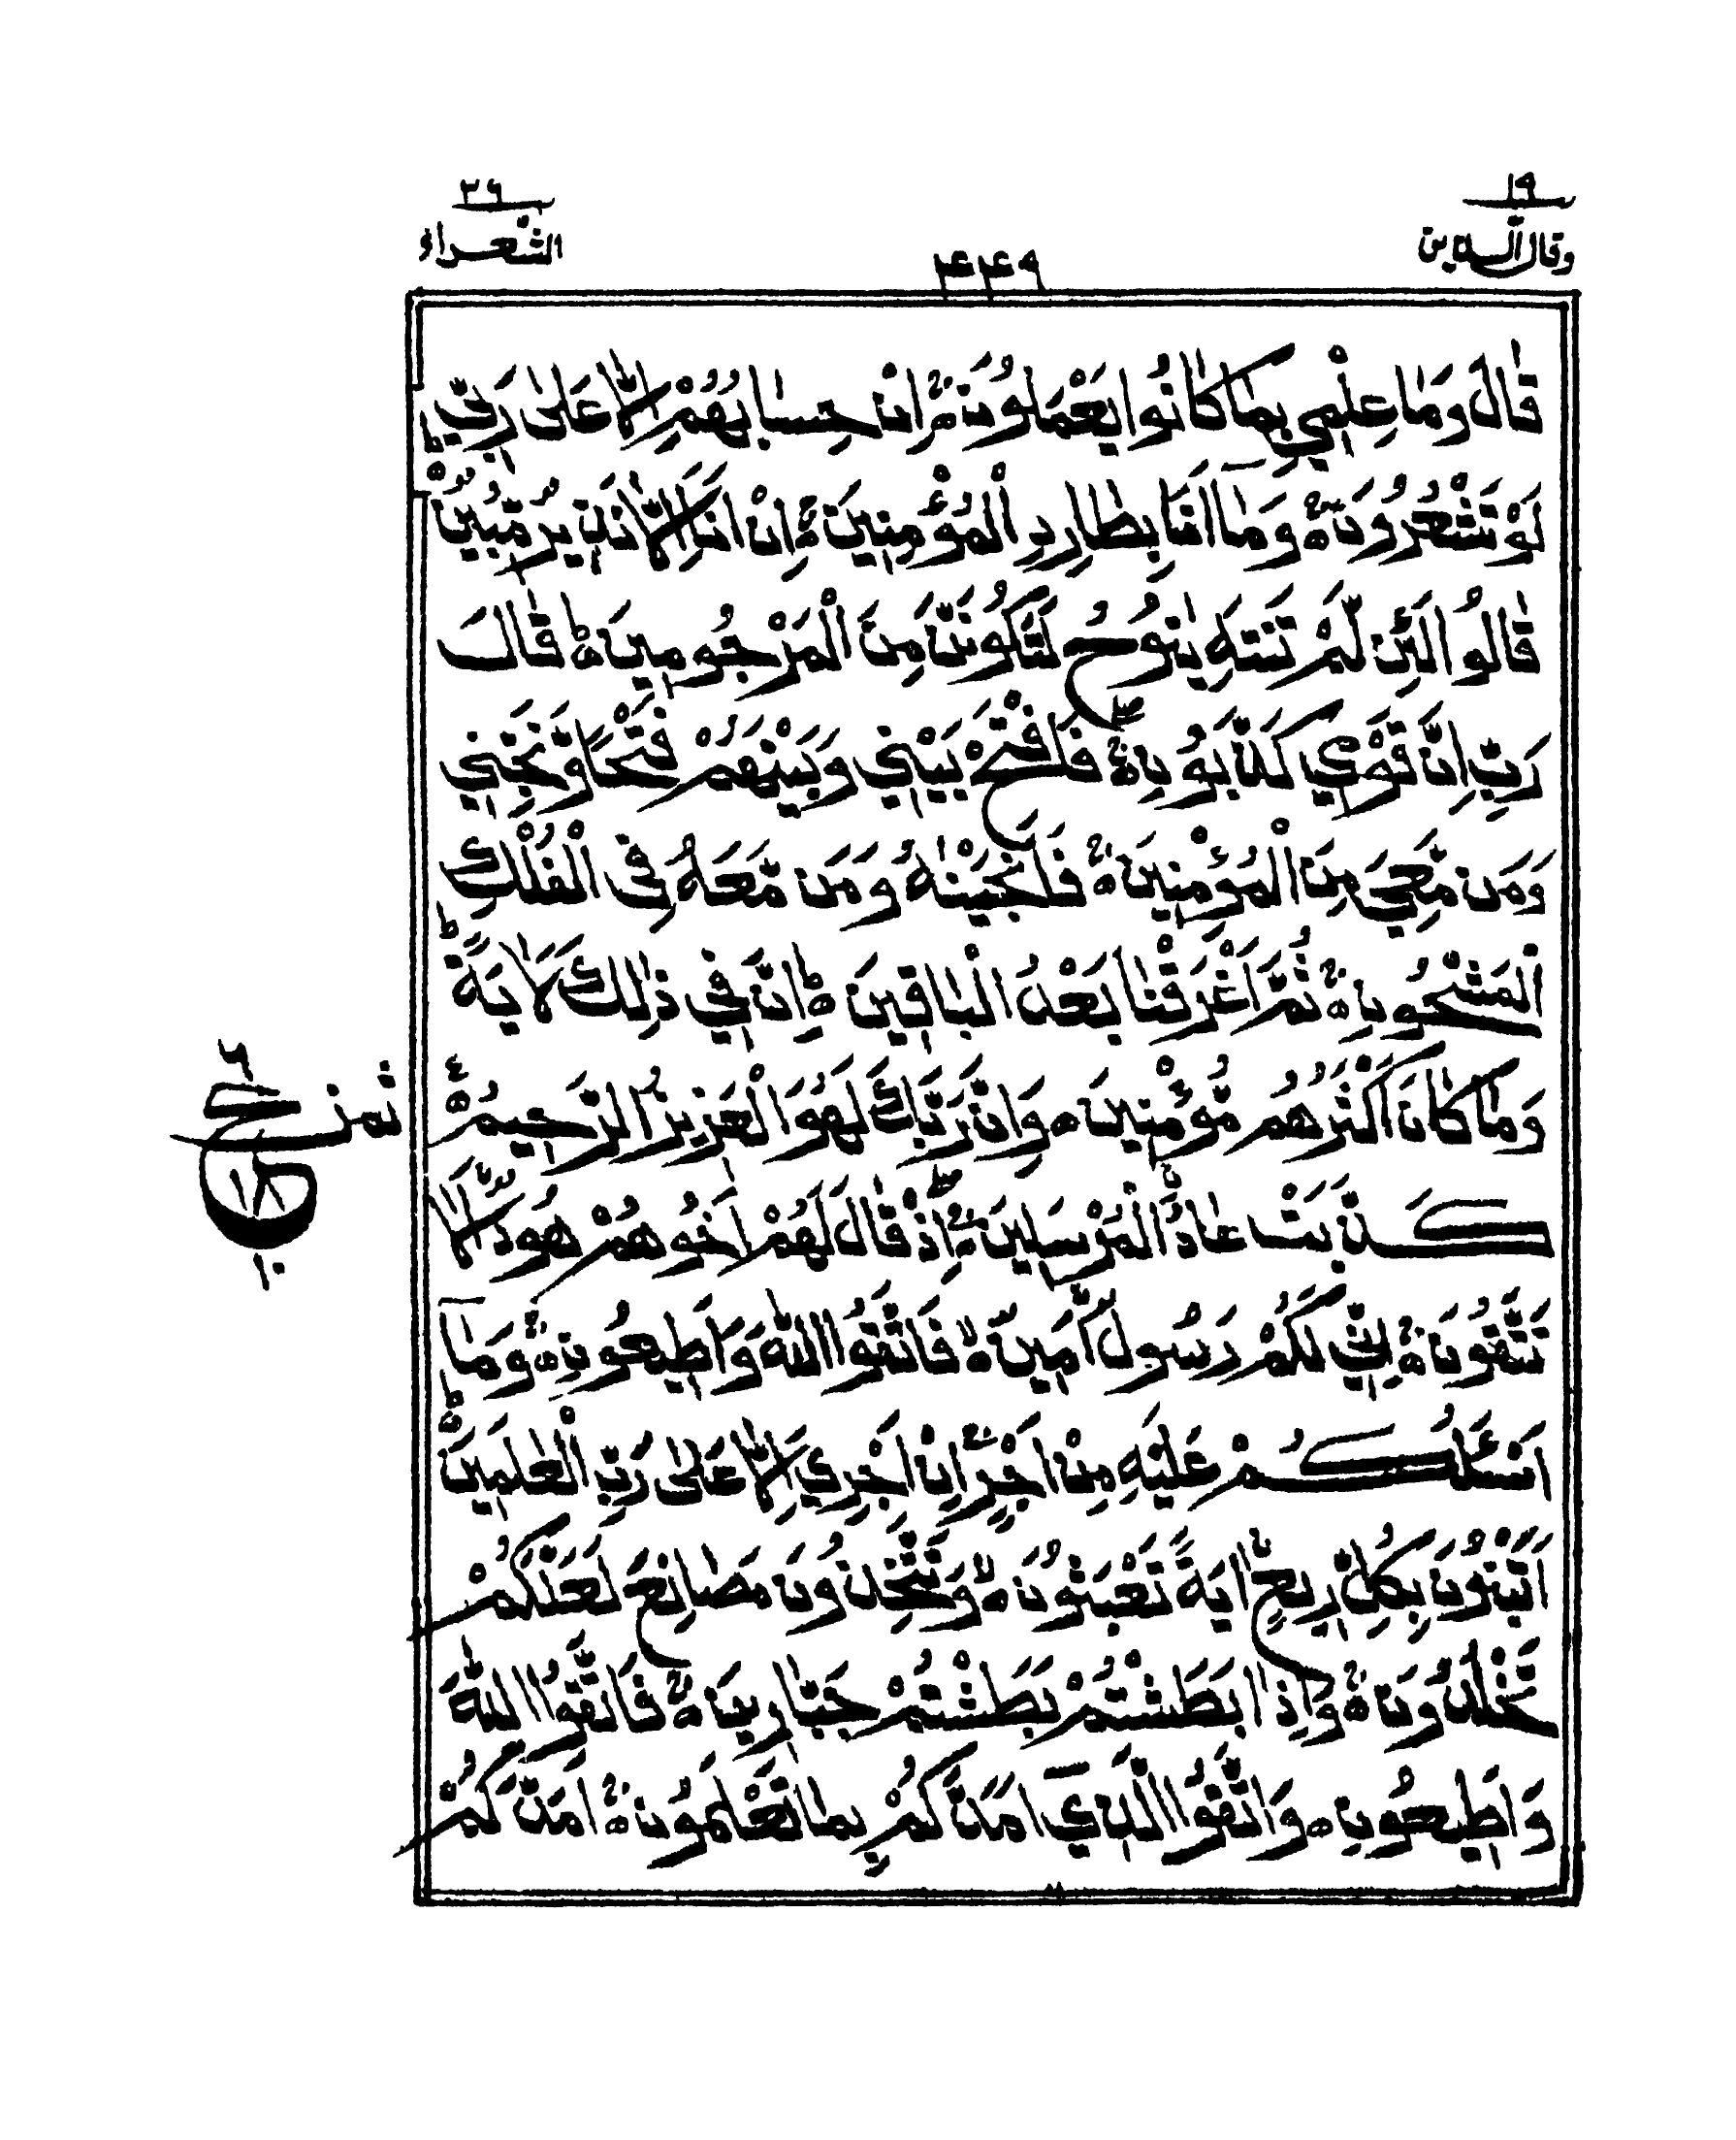 ١٩
وقال الذين
٣٦
الشعراء
٤٤٩
قَالَ وَمَا عِلْمِي بِمَا كَانُوا يَعْمَلُونَ ۝ اِنْ حِسَابُهُمْ اِلَّا عَلٰى رَبِّي
لَوْ تَشْعُرُونَ ۝ وَمَا اَنَا بِطَارِدِ الْمُؤْمِنِينَ ۝ اِنْ اَنَا اِلَّا نَذِيرٌ مُّبِينٌ ۝
قَالُوا لَئِن لَّمْ تَنتَهِ يٰنُوحُ لَتَكُونَنَّ مِنَ الْمَرْجُومِينَ ۝ قَالَ
رَبِّ اِنَّ قَوْمِي كَذَّبُونِ ۝ فَافْتَحْ بَيْنِي وَبَيْنَهُمْ فَتْحًا وَّنَجِّنِي
وَمَن مَّعِيَ مِنَ الْمُؤْمِنِينَ ۝ فَاَنْجَيْنٰهُ وَمَن مَّعَهُ فِي الْفُلْكِ
الْمَشْحُونِ ۝ ثُمَّ اَغْرَقْنَا بَعْدُ الْبَاقِينَ ۝ اِنَّ فِي ذٰلِكَ لَاٰيَةً
وَمَا كَانَ اَكْثَرُهُم مُّؤْمِنِينَ ۝ وَاِنَّ رَبَّكَ لَهُوَ الْعَزِيزُ الرَّحِيمُ ۝
كَذَّبَتْ عَادُ الْمُرْسَلِينَ ۝ اِذْ قَالَ لَهُمْ اَخُوهُمْ هُودٌ اَلَا
تَتَّقُونَ ۝ اِنِّي لَكُمْ رَسُولٌ اَمِينٌ ۝ فَاتَّقُوا اللّٰهَ وَاَطِيعُونِ ۝ وَمَا
اَسْئَلُكُمْ عَلَيْهِ مِنْ اَجْرٍ اِنْ اَجْرِيَ اِلَّا عَلٰى رَبِّ الْعٰلَمِينَ ۝
اَتَبْنُونَ بِكُلِّ رِيعٍ اٰيَةً تَعْبَثُونَ ۝ وَتَتَّخِذُونَ مَصَانِعَ لَعَلَّكُمْ
تَخْلُدُونَ ۝ وَاِذَا بَطَشْتُمْ بَطَشْتُمْ جَبَّارِينَ ۝ فَاتَّقُوا اللّٰهَ
وَاَطِيعُونِ ۝ وَاتَّقُوا الَّذِيٓ اَمَدَّكُمْ بِمَا تَعْلَمُونَ ۝ اَمَدَّكُمْ
ثمن
٦
ع
١٨
١٠